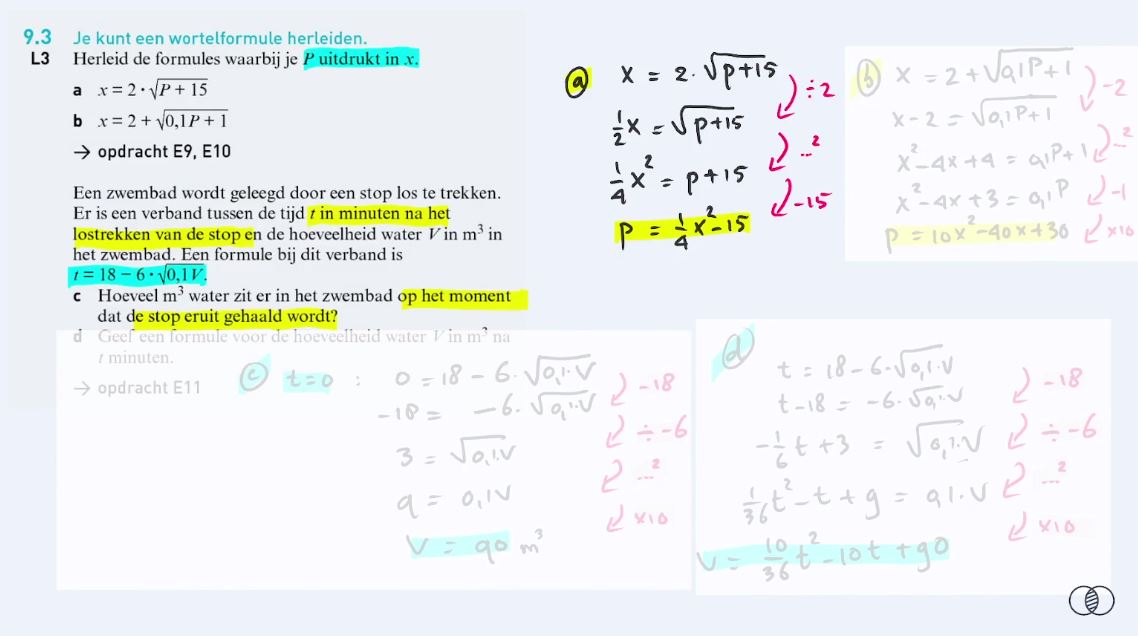 9.3 Je kunt een wortelformule herleiden.
L3 Herleid de formules waarbij je P uitdrukt in x.
a x = 2 · √(P + 15)
b x = 2 + √(0,1P + 1)
→ opdracht E9, E10
Een zwembad wordt geleegd door een stop los te trekken.
Er is een verband tussen de tijd t in minuten na het
lostrekken van de stop en de hoeveelheid water V in m³ in
het zwembad. Een formule bij dit verband is
t = 18 − 6 · √(0,1V).
c Hoeveel m³ water zit er in het zwembad op het moment
dat de stop eruit gehaald wordt?
d Geef een formule voor de hoeveelheid water V in m³ na
t minuten.
→ opdracht E11
a x = 2 · √(p+15)
÷2
½x = √(p+15)
...²
¼x² = p+15
-15
p = ¼x² - 15
b x = 2 + √(0,1P+1)
-2
x-2 = √(0,1P+1)
...²
x²-4x+4 = 0,1P+1
-1
x²-4x+3 = 0,1P
×10
p = 10x²-40x+30
c t=0 : 0 = 18 - 6·√(0,1·V)
-18
-18 = -6·√(0,1·V)
÷ -6
3 = √(0,1V)
...²
9 = 0,1V
×10
V = 90 m³
d t = 18 - 6·√(0,1·V)
-18
t-18 = -6·√(0,1·V)
÷ -6
-1/6 t + 3 = √(0,1·V)
...²
1/36 t² - t + 9 = 0,1·V
×10
V = 10/36 t² - 10t + 90